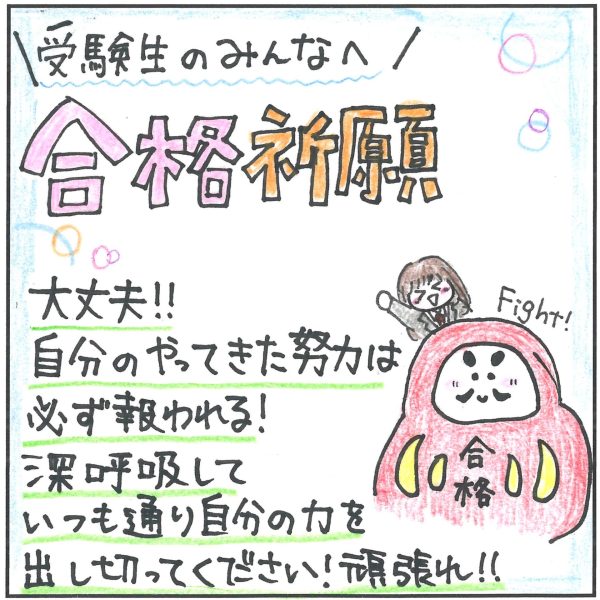 \受験生のみんなへ/
合格祈願
大丈夫!!
自分のやってきた努力は
必ず報われる!
深呼吸して
いつも通り自分の力を
出し切ってください!頑張れ!!
Fight!
合格